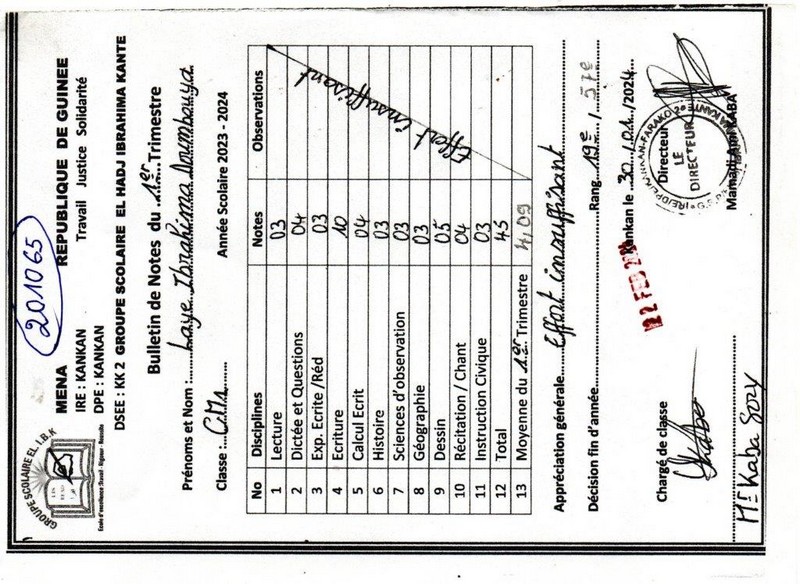 201065
MENA REPUBLIQUE DE GUINEE
IRE : KANKAN Travail Justice Solidarité
DPE : KANKAN
DSEE : KK 2 GROUPE SCOLAIRE EL HADJ IBRAHIMA KANTE
GROUPE SCOLAIRE EL I.B.K
Bulletin de Notes du 1er Trimestre
Prénoms et Nom : Laye Ibrahima Doumbouya
Classe : CM1 Année Scolaire 2023 - 2024
No Disciplines Notes Observations
1 Lecture 03
2 Dictée et Questions 04
3 Exp. Ecrite /Réd 03
4 Ecriture 10
5 Calcul Ecrit 04
6 Histoire 03
7 Sciences d'observation 03
8 Géographie 03
9 Dessin 05
10 Récitation / Chant 04
11 Instruction Civique 03
12 Total 45
13 Moyenne du 1er Trimestre 4,09
Effort insuffisant
Appréciation générale Effort insuffisant
Décision fin d'année Rang 19e / 57e
Kankan le 30/01/2024
Chargé de classe Directeur
LE DIRECTEUR
Mr Kaba Sory